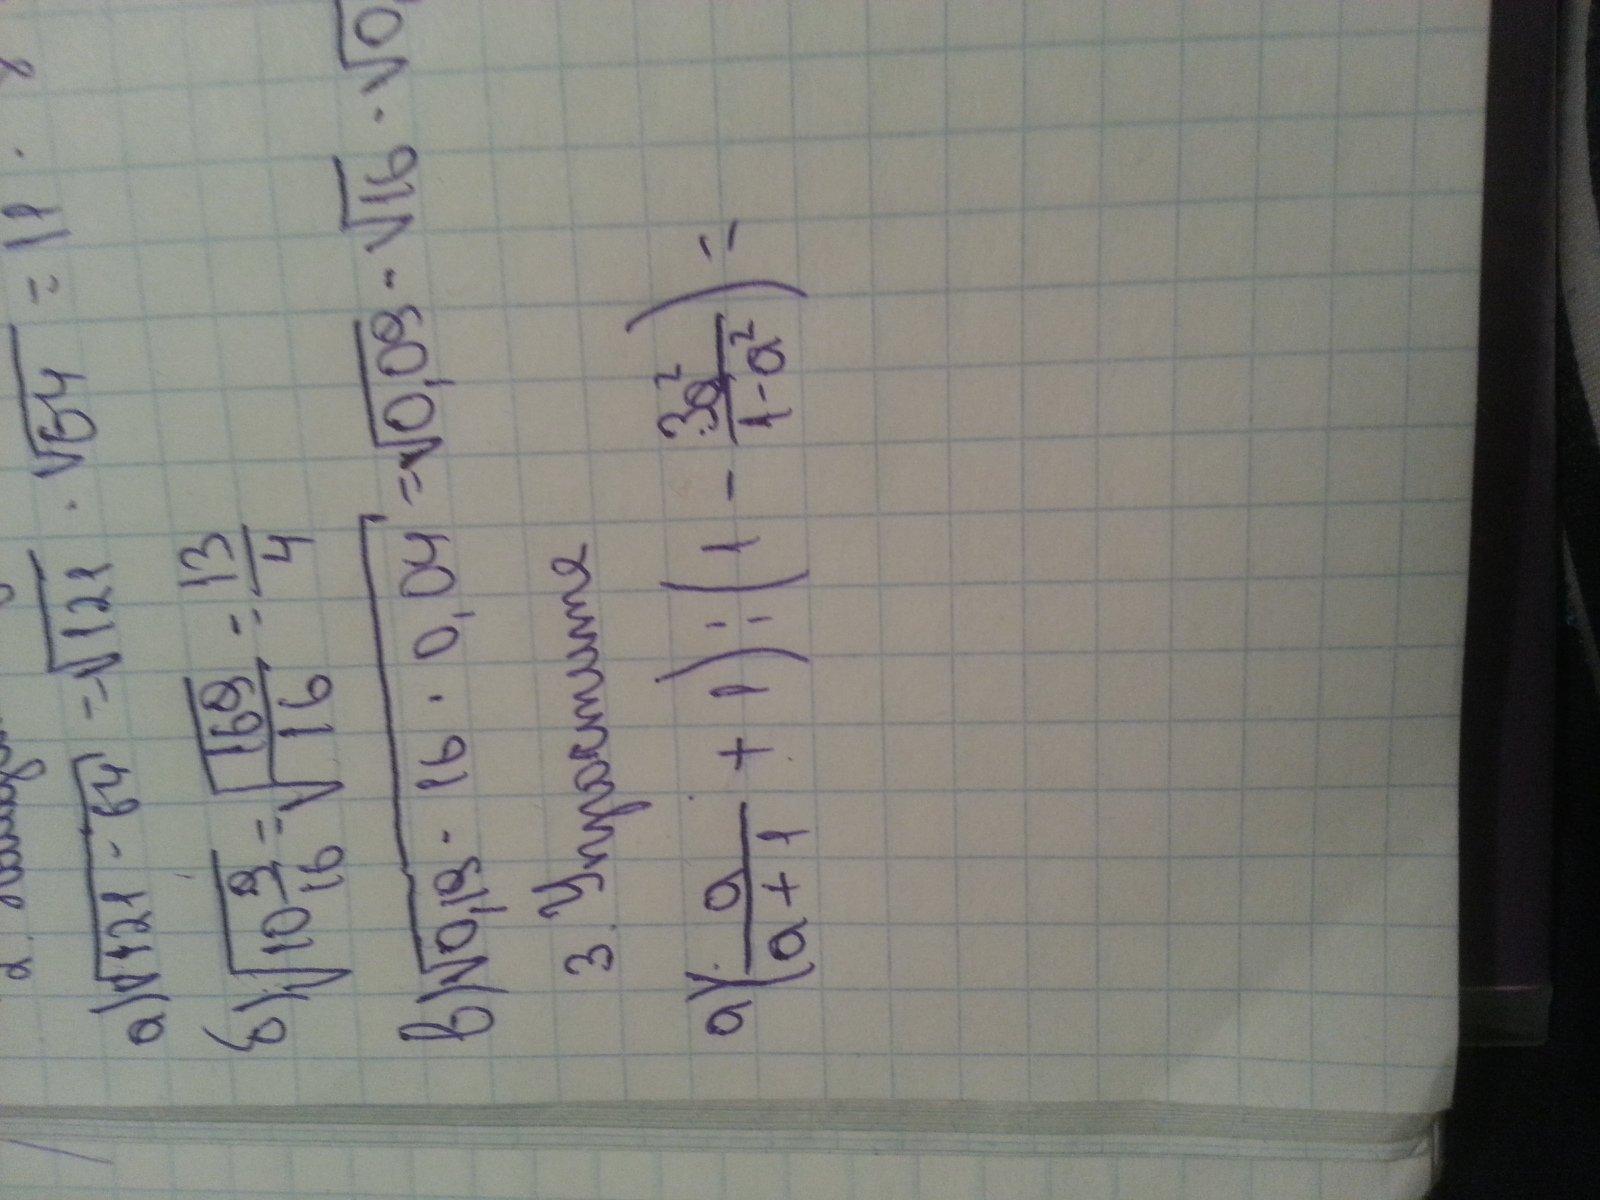 2.
а) √121 · 64 = √121 · √64 = 11 · 8
б) √10 9/16 = √169/√16 = 13/4
в) √0,19 · 16 · 0,04 = √0,09 · √16 · √0,
3. Упростите
а) (a/(a + 1) + 1) : (1 - 3a²/(1 - a²)) =